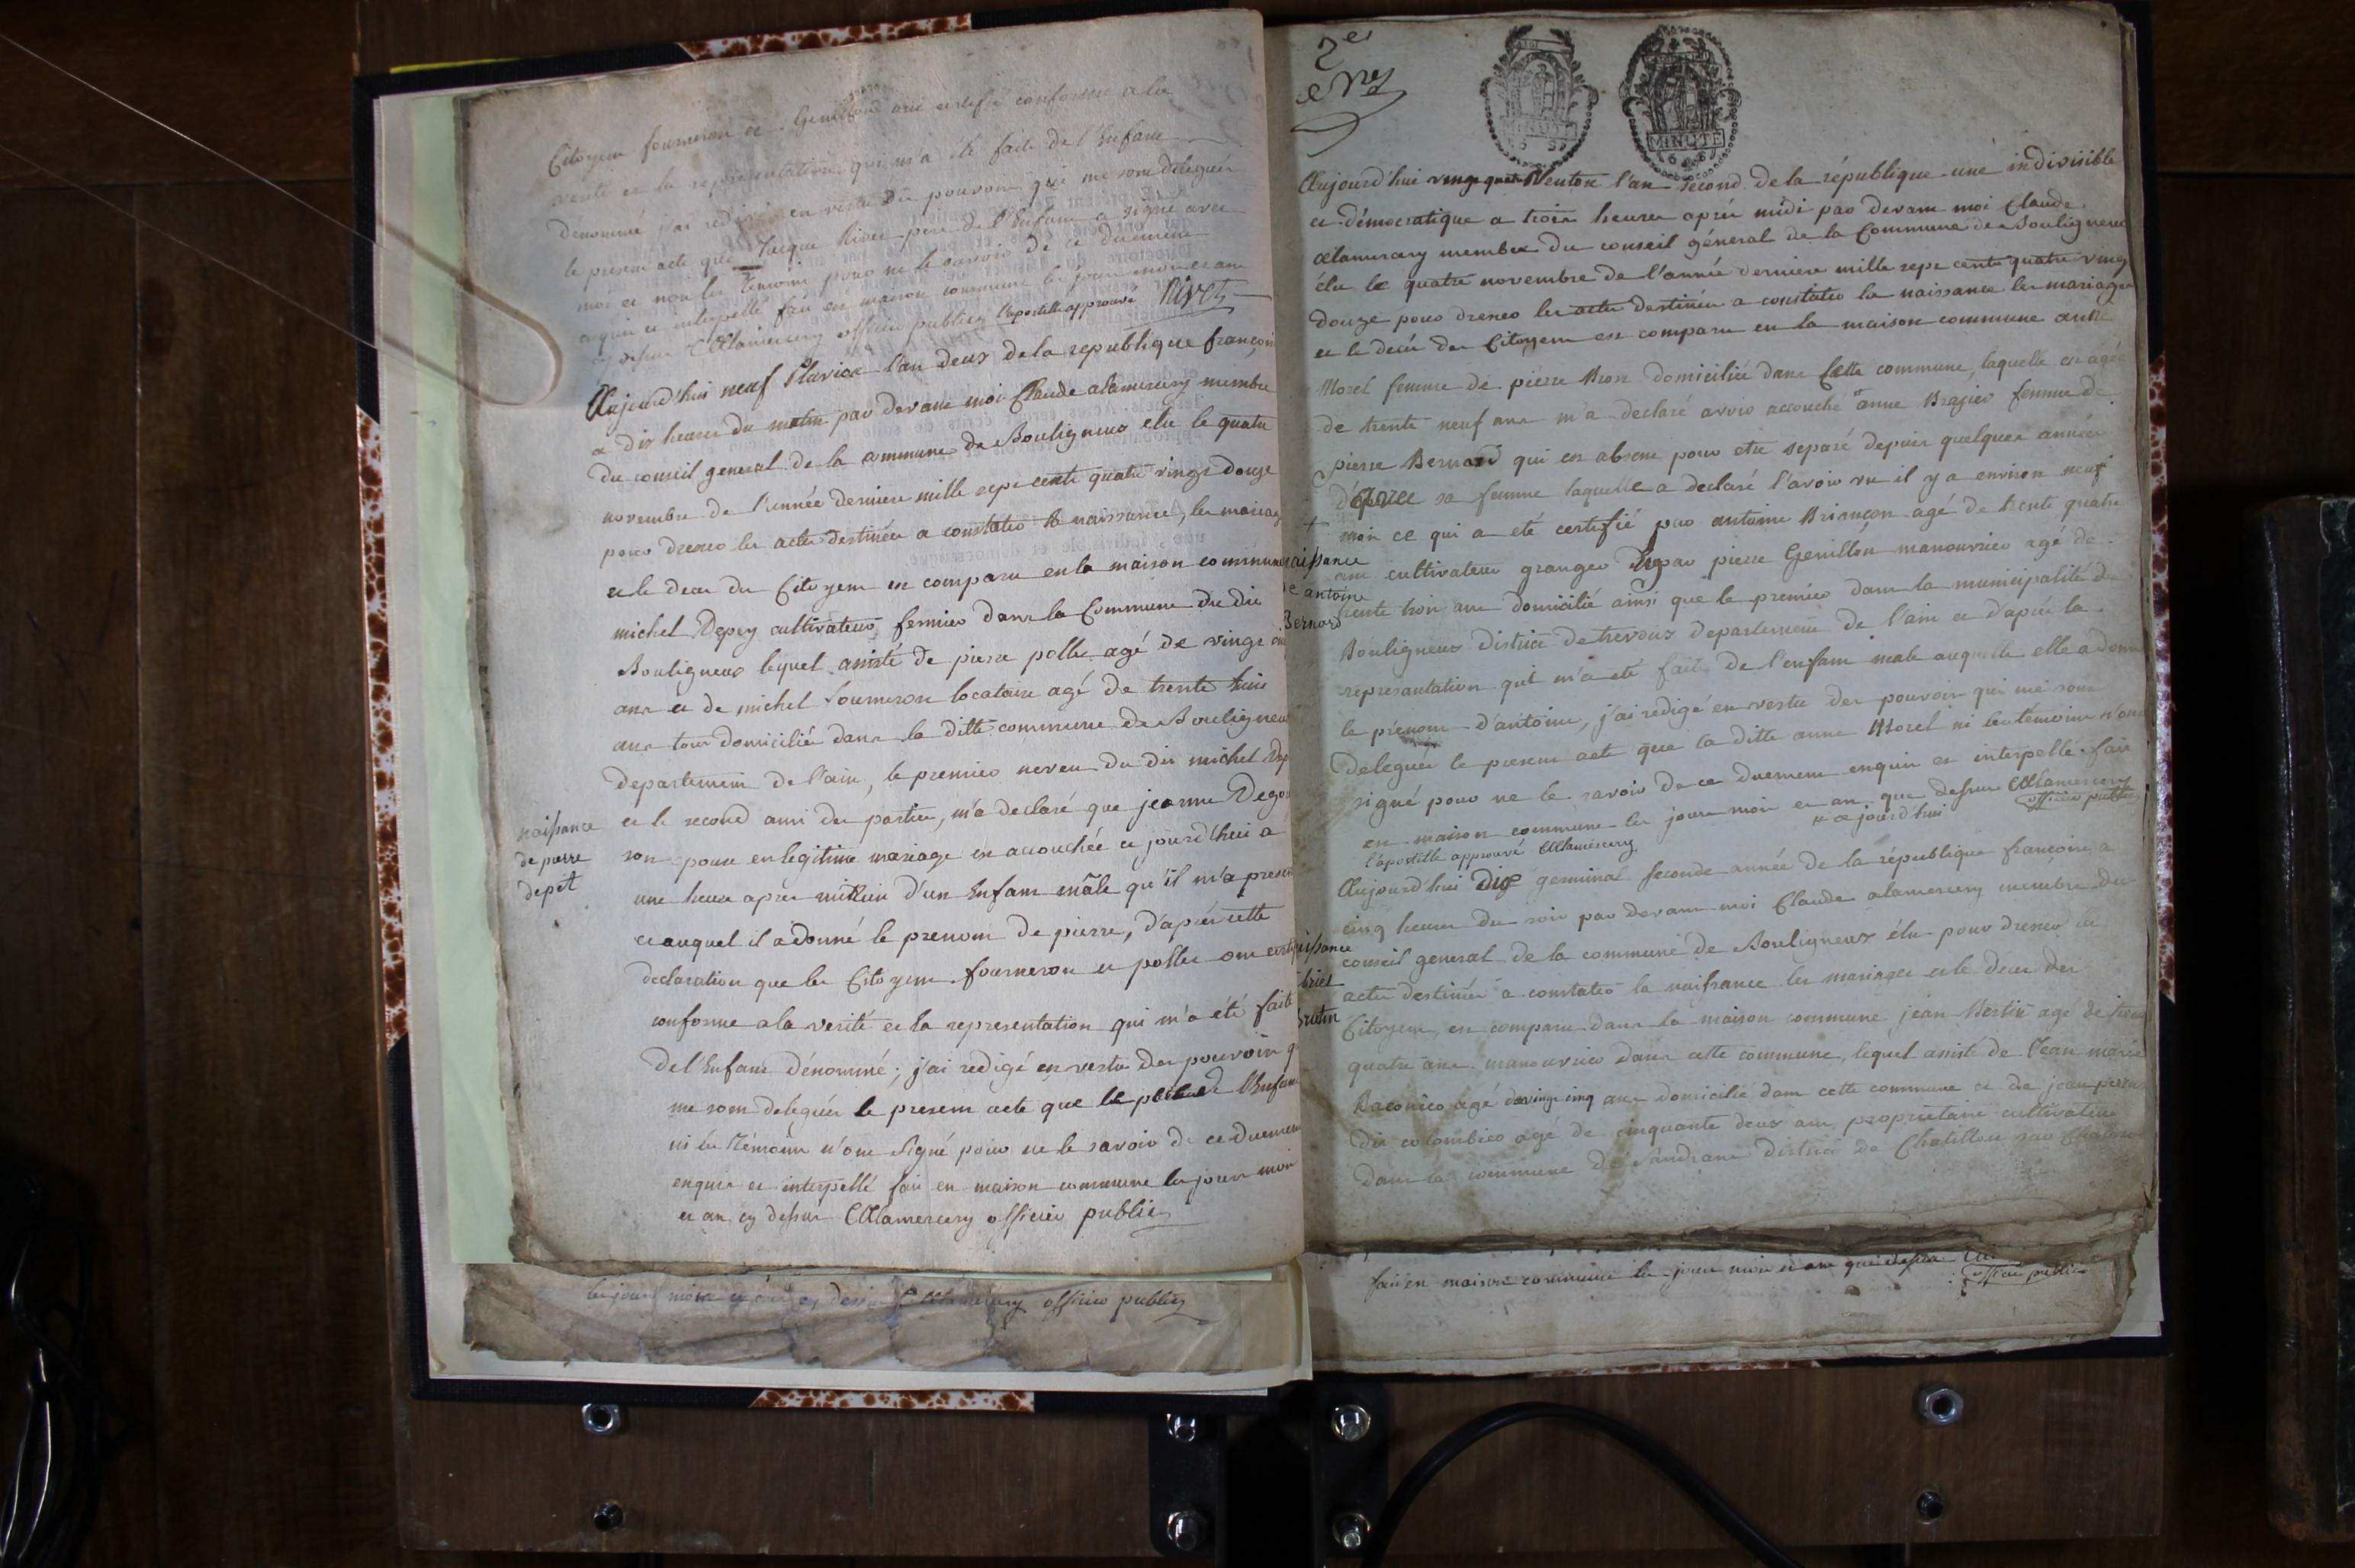 Citoyens fourneron et Genillon ont certifié conforme a la
verité et la representation qui m'a été faite de l'Enfant
dénommé j'ai redigé en vertu des pouvoirs qui me sont delegués
le present acte que Jacque Rivet pere de l'Enfant a signé avec
moi et non les témoins pour ne le savoir de ce duement
enquis et interpellé fait en maison commune les jour mois et an
cy dessus CAlamercery officier public l'apostille approuvé Rivet
Aujourd'hui neuf Pluviose l'an deux de la republique françoise
a dix heures du matin par devant moi Claude alamercery membre
du conseil general de la commune de Bouligneux elu le quatre
novembre de l'année derniere mille sept cents quatre vingt douze
pour dresser les actes destinés a constater la naissance, les mariages
et le deces des Citoyens est comparu en la maison commune
michel Depey cultivateur fermier dans la Commune du dit
Bouligneux lequel assisté de pierre pollet agé de vingt
ans et de michel fourneron locataire agé de trente huit
ans tous domiciliés dans la ditte commune de Bouligneux
departement de l'ain, le premier neveu du dit michel Dep
et le second ami des parties, m'a declaré que jeanne Dego
son epouse en legitime mariage est accouchée ce jourd'hui a
une heure apres minuit d'un Enfant mâle qu'il m'a presen
et auquel il a donné le prenom de pierre, d'après cette
declaration que les Citoyens fourneron et pollet ont certi
conforme a la verité et la representation qui m'a été faite
de l'Enfant dénommé; j'ai redigé en vertu des pouvoirs q
me sont delegués le present acte que le pere de l'Enfant
ni les témoins n'ont signé pour ne le savoir de ce duement
enquis et interpellé fait en maison commune les jour mois
et an cy dessus CAlamercery officier public
naissance
de pierre
depét
les jour mois et an cy dessus CAlamercery officier public
2e
MINUTE
MINUTE
Aujourd'hui vingt quatre Ventose l'an second de la république une indivisible
et démocratique a trois heures après midi par devant moi Claude
alamercery membre du conseil géneral de la Commune de Bouligneux
élu le quatre novembre de l'année derniere mille sept cents quatre vingt
douze pour dresser les actes destinés a constater la naissance les mariages
et le decés des Citoyens est comparu en la maison commune anne
Morel femme de pierre Bron domiciliée dans cette commune, laquelle est agée
de trente neuf ans m'a declaré avoir accouché anne Brazier femme de
pierre Bernard qui est absent pour etre separé depuis quelques années
d'avec sa femme laquelle a declaré l'avoir vu il y a environ neuf
mois ce qui a eté certifié par antoine Briançon agé de trente quatre
ans cultivateur granger et par pierre Genillon manouvrier agé de
trente trois ans domicilié ainsi que le premier dans la municipalité de
Bouligneux district de trevoux departement de l'ain et d'après la
represantation qui m'a eté faite de l'enfant male auquelle elle a donné
le prénom d'antoine, j'ai redigé en vertu des pouvoirs qui me sont
delegués le present acte que la ditte anne Morel ni les témoins n'ont
signé pour ne le savoir de ce duement enquis et interpellé fait
en maison commune les jour mois et an que dessus CAlamercery
officier public
ce jourd'hui
l'apostille approuvé CAlamercery
naissance
de antoine
Bernard
Aujourd'hui dix germinal seconde année de la république françoise a
cinq heures du soir par devant moi Claude alamercery membre du
conseil general de la commune de Bouligneux élu pour dresser les
actes destinés a constater la naissance les mariages et le deces des
Citoyens, est comparu dans la maison commune jean agé de trente
quatre ans manouvrier dans cette commune, lequel assisté de Jean marie
agé de vingt cinq ans domicilié dans cette commune et de jean
dit colombier agé de cinquante deux ans proprietaire cultivateur
dans la commune de Sandrans district de Chatillon sur Chalaronne
fait en maison commune les jour mois et an que dessus
officier public